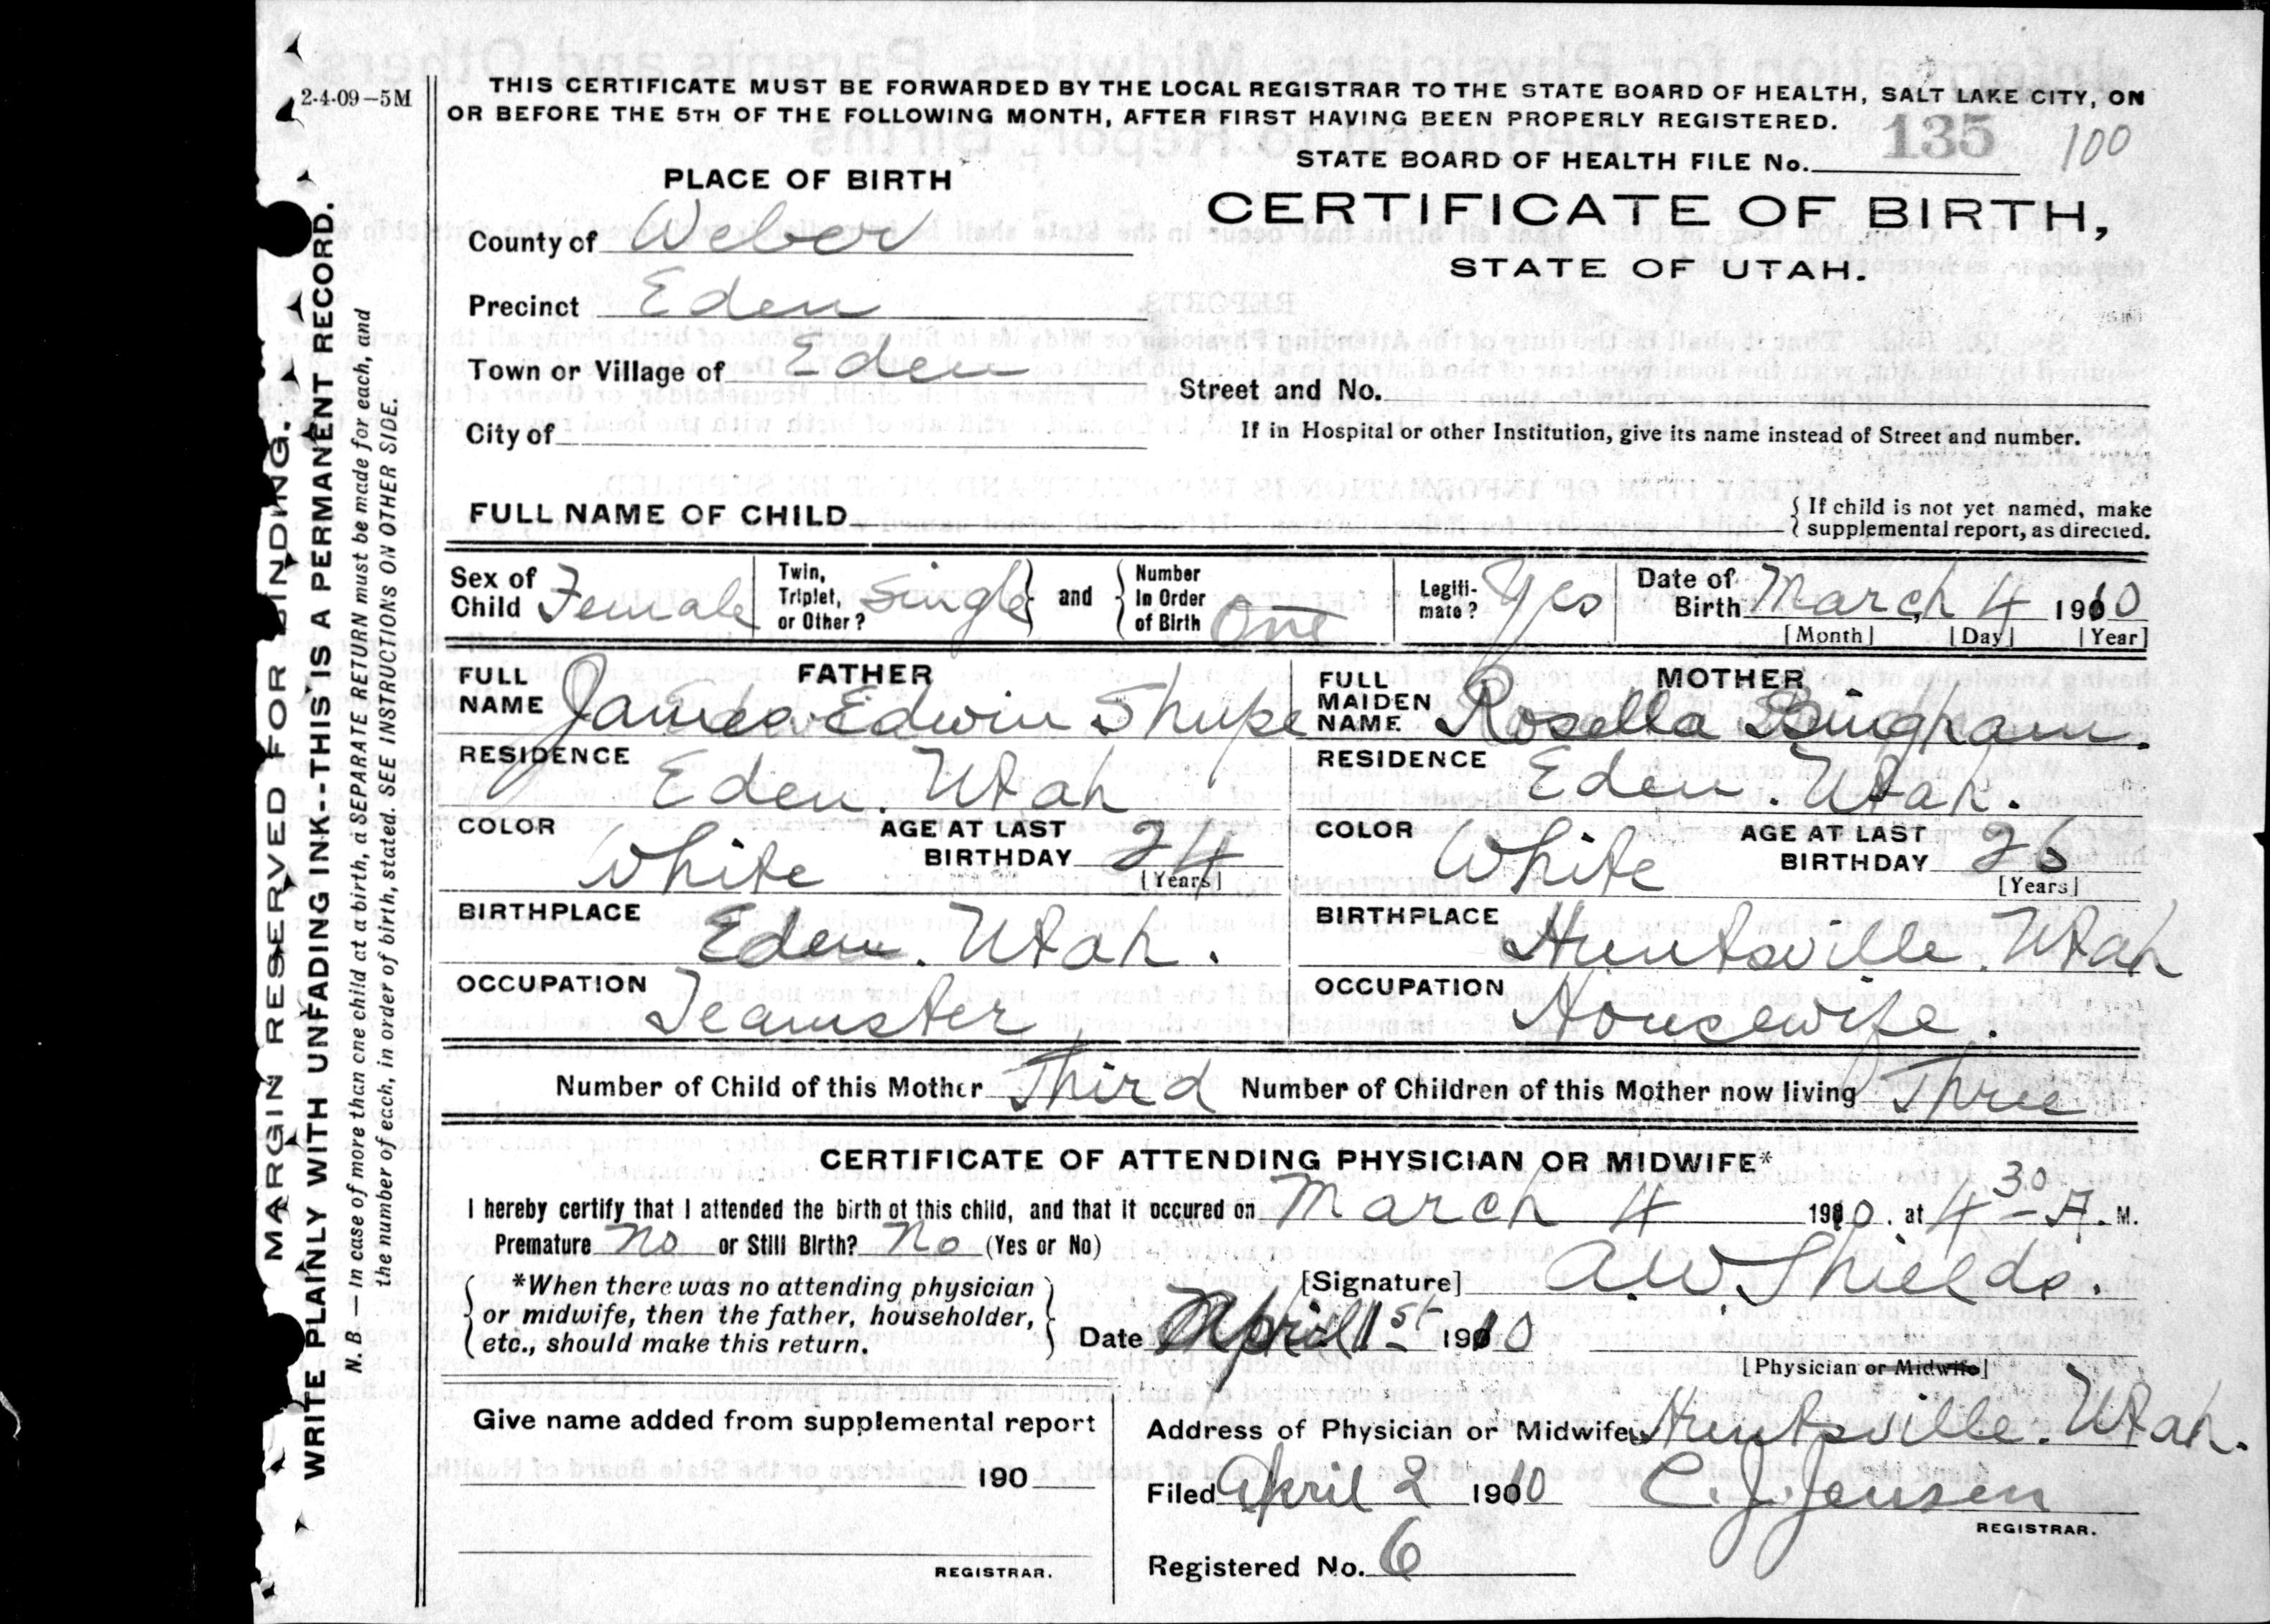 2-4-09—5M
THIS CERTIFICATE MUST BE FORWARDED BY THE LOCAL REGISTRAR TO THE STATE BOARD OF HEALTH, SALT LAKE CITY, ON
OR BEFORE THE 5TH OF THE FOLLOWING MONTH, AFTER FIRST HAVING BEEN PROPERLY REGISTERED.
STATE BOARD OF HEALTH FILE No. 135 100
PLACE OF BIRTH
CERTIFICATE OF BIRTH,
STATE OF UTAH.
County of Weber
Precinct Eden
Town or Village of Eden
Street and No.
City of
If in Hospital or other Institution, give its name instead of Street and number.
FULL NAME OF CHILD
{ If child is not yet named, make
{ supplemental report, as directed.
Sex of Child Female
Twin, Triplet, or Other? Single } and { Number In Order of Birth One
Legiti-mate? Yes
Date of Birth March, 4 1910
[Month] [Day] [Year]
FATHER
FULL NAME James Edwin Shupe
RESIDENCE
Eden. Utah
COLOR White AGE AT LAST BIRTHDAY 24
[Years]
BIRTHPLACE
Eden. Utah.
OCCUPATION
Teamster
MOTHER
FULL MAIDEN NAME Rosella Bingham.
RESIDENCE
Eden. Utah.
COLOR White AGE AT LAST BIRTHDAY 26
[Years]
BIRTHPLACE
Huntsville. Utah
OCCUPATION
Housewife.
Number of Child of this Mother Third Number of Children of this Mother now living Three
CERTIFICATE OF ATTENDING PHYSICIAN OR MIDWIFE*
I hereby certify that I attended the birth of this child, and that it occured on March 4 1910. at 4 30 A. M.
Premature No or Still Birth? No (Yes or No)
*When there was no attending physician
or midwife, then the father, householder,
etc., should make this return.
[Signature] A.W Shields.
Date April 1st 1910
[Physician or Midwife]
Give name added from supplemental report
190
REGISTRAR.
Address of Physician or Midwife Huntsville. Utah.
Filed April 2 1910 C. J. Jensen
REGISTRAR.
Registered No. 6
MARGIN RESERVED FOR BINDING.
WRITE PLAINLY WITH UNFADING INK--THIS IS A PERMANENT RECORD.
N. B. — In case of more than one child at a birth, a SEPARATE RETURN must be made for each, and
the number of each, in order of birth, stated. SEE INSTRUCTIONS ON OTHER SIDE.